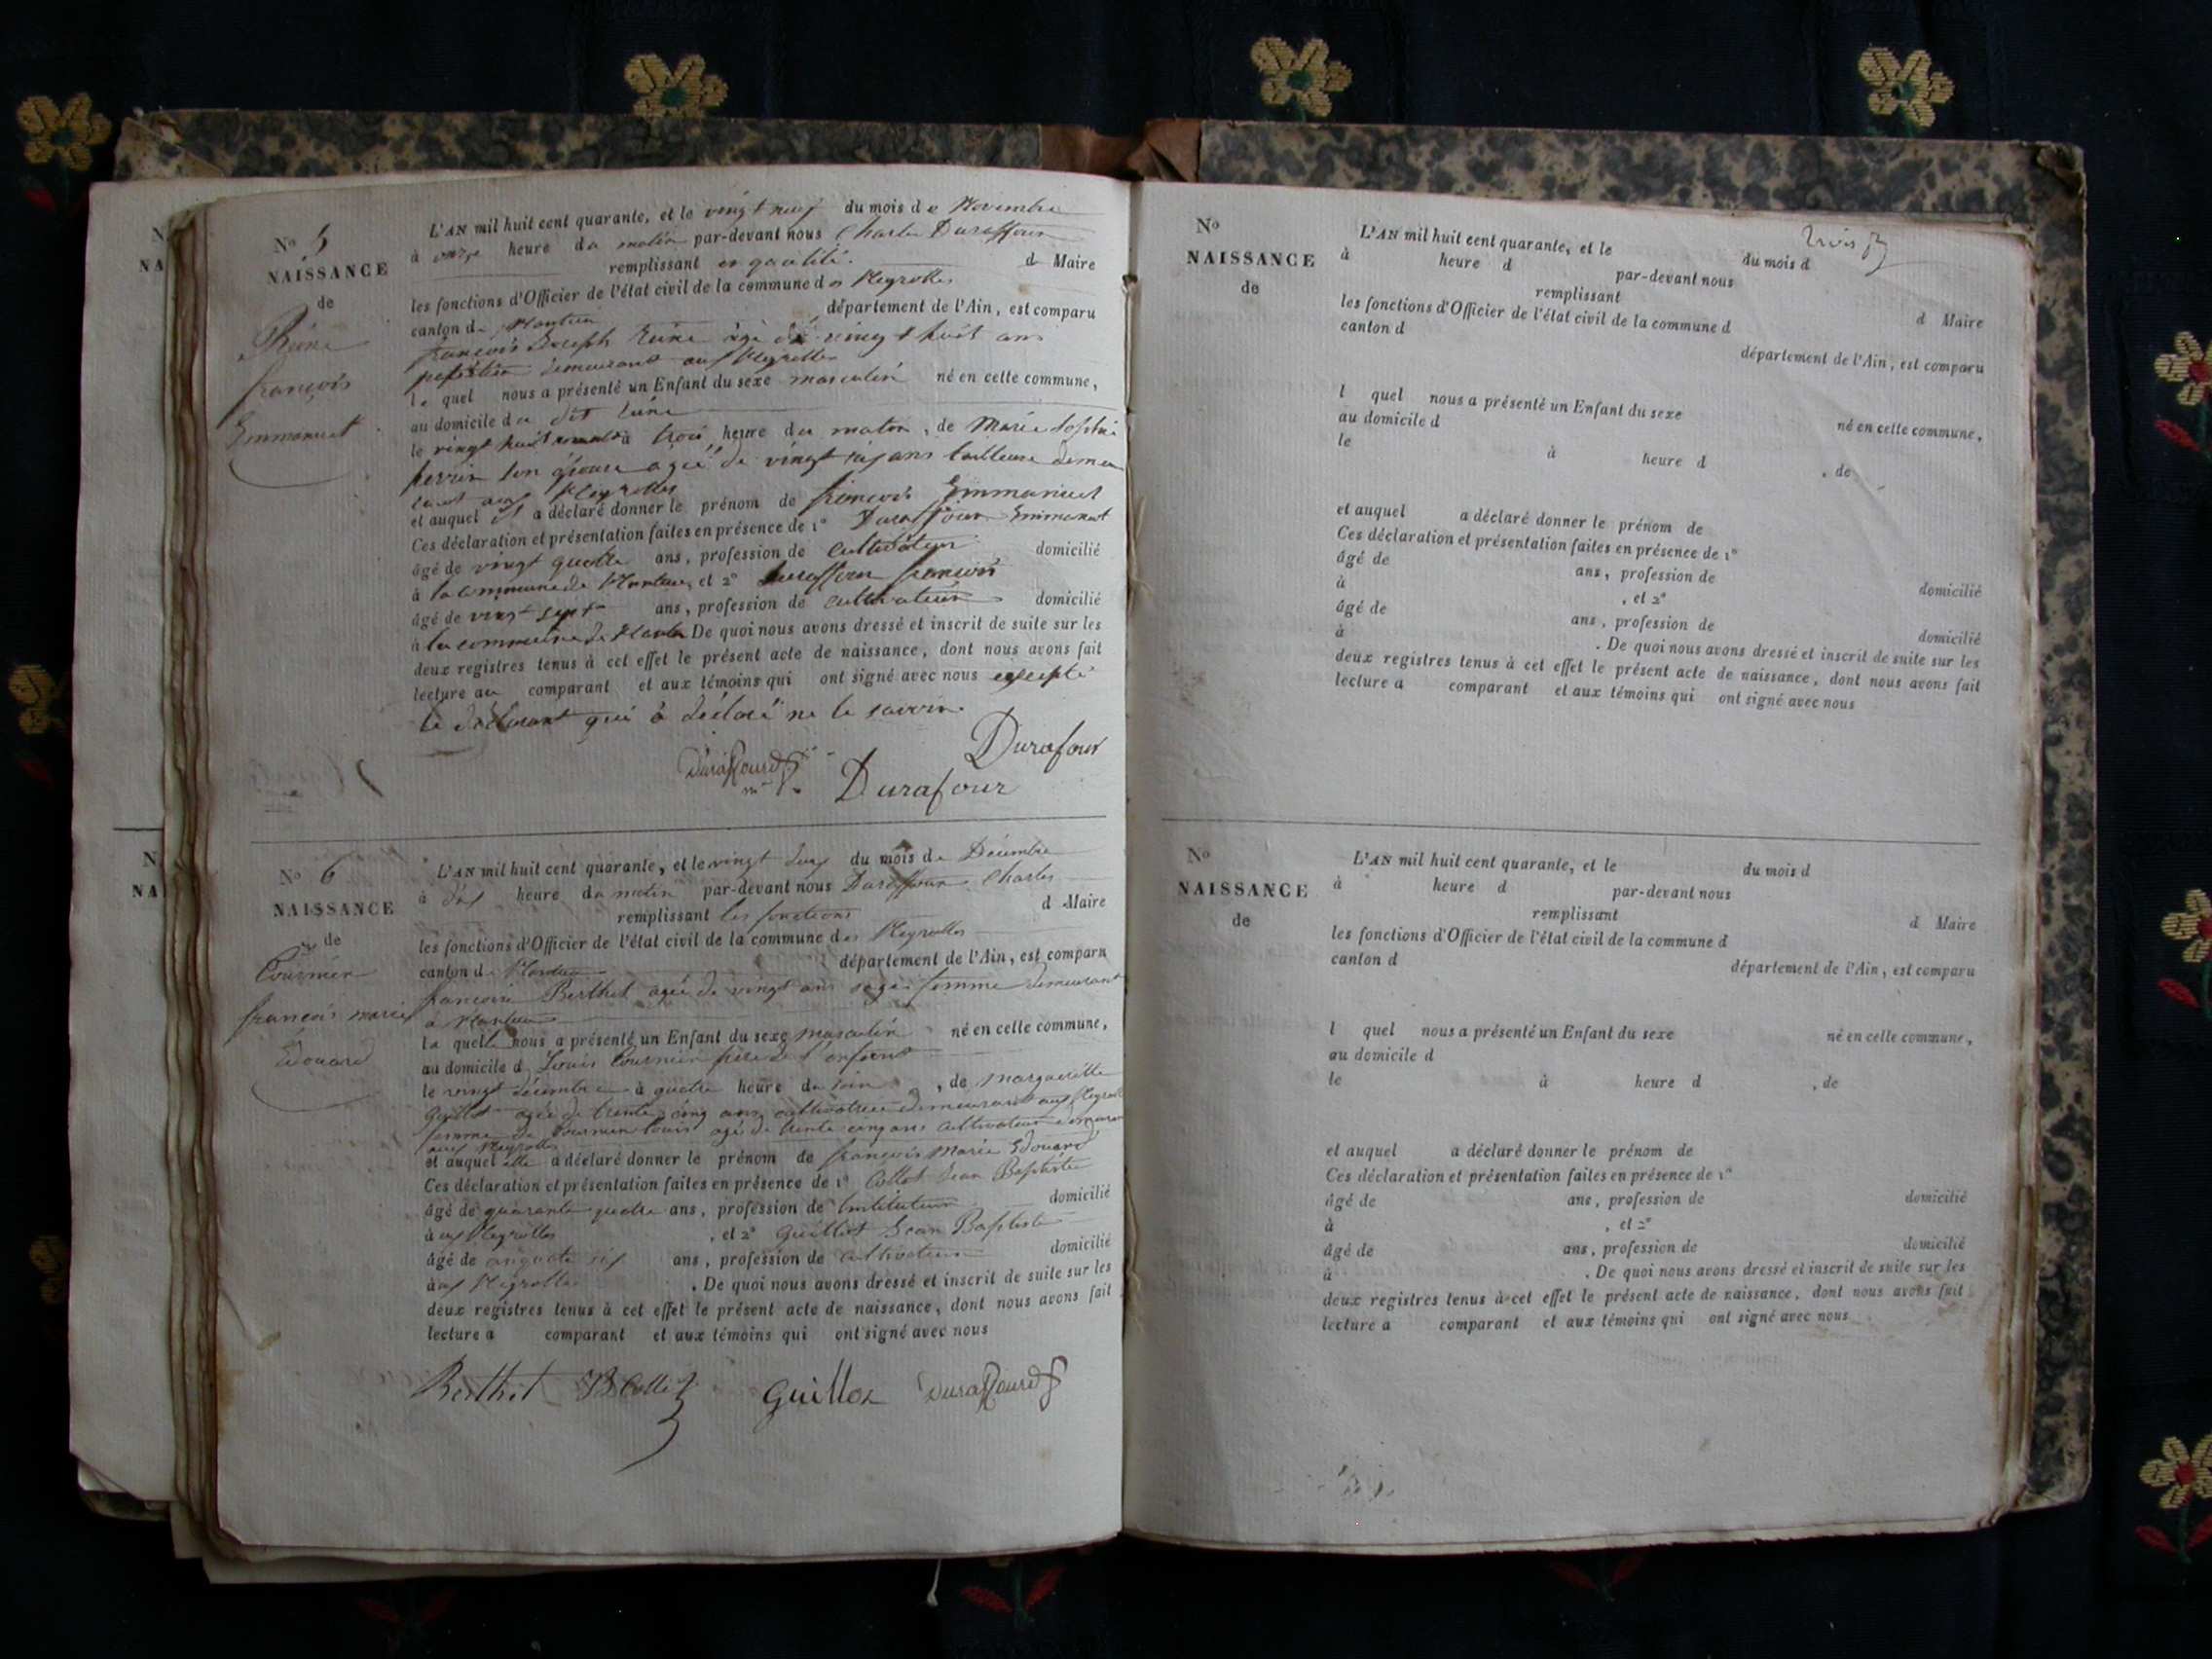 N
NA
N
NA
N° 5
NAISSANCE
de
Reine
françois
Emmanuel
L'AN mil huit cent quarante, et le vingt neuf du mois de Novembre
à onze heure du matin par-devant nous Charles Duraffour
remplissant en qualité d Maire
les fonctions d'Officier de l'état civil de la commune des Neyrolles
canton de Nantua département de l'Ain, est comparu
françois Joseph Reine âgé de vingt huit ans
demeurant aux Neyrolles
le quel nous a présenté un Enfant du sexe masculin né en cette commune,
au domicile du dit Reine
le vingt huit à trois heure du matin, de Marie Josephe
perrin son épouse agée de vingt six ans tailleuse demeu
rant aux Neyrolles
et auquel il a déclaré donner le prénom de françois Emmanuel
Ces déclaration et présentation faites en présence de 1° Duraffour Emmanuel
âgé de vingt quatre ans, profession de cultivateur domicilié
à la commune de Nantua, et 2° Duraffour françois
âgé de vingt sept ans, profession de cultivateur domicilié
à la commune de Nantua De quoi nous avons dressé et inscrit de suite sur les
deux registres tenus à cet effet le présent acte de naissance, dont nous avons fait
lecture au comparant et aux témoins qui ont signé avec nous excepté
le déclarant qui à déclaré ne le savoir.
Durafour
Duraffourd
Durafour
N° 6
NAISSANCE
de
Cournier
françois marie
Edouard
L'AN mil huit cent quarante, et le vingt deux du mois de Décembre
à dix heure du matin par-devant nous Duraffour Charles
remplissant les fonctions d Maire
les fonctions d'Officier de l'état civil de la commune des Neyrolles
canton de Nantua département de l'Ain, est comparu
françoise Berthet agée de vingt ans sage femme demeurant
à Nantua
la quelle nous a présenté un Enfant du sexe masculin né en cette commune,
au domicile d Louis Cournier père de l'enfant
le vingt décembre à quatre heure du soir, de margueritte
Guillot agée de trente cinq ans cultivatrice demeurant aux Neyrolles
femme de Cournier Louis agé de trente cinq ans cultivateur demeurant
aux Neyrolles
et auquel elle a déclaré donner le prénom de françois Marie Edouard
Ces déclaration et présentation faites en présence de 1° Collet Jean Baptiste
âgé de quarante quatre ans, profession de Instituteur domicilié
à aux Neyrolles, et 2° Guillot Jean Baptiste
âgé de cinquante six ans, profession de cultivateur domicilié
à aux Neyrolles. De quoi nous avons dressé et inscrit de suite sur les
deux registres tenus à cet effet le présent acte de naissance, dont nous avons fait
lecture a comparant et aux témoins qui ont signé avec nous
Berthet JB Collet Guillot Duraffourd
N°
NAISSANCE
de
L'AN mil huit cent quarante, et le du mois d
à heure d par-devant nous
remplissant d Maire
les fonctions d'Officier de l'état civil de la commune d
canton d département de l'Ain, est comparu
l quel nous a présenté un Enfant du sexe né en cette commune,
au domicile d
le à heure d , de
et auquel a déclaré donner le prénom de
Ces déclaration et présentation faites en présence de 1°
âgé de ans, profession de domicilié
à , et 2°
âgé de ans, profession de domicilié
à . De quoi nous avons dressé et inscrit de suite sur les
deux registres tenus à cet effet le présent acte de naissance, dont nous avons fait
lecture a comparant et aux témoins qui ont signé avec nous
N°
NAISSANCE
de
L'AN mil huit cent quarante, et le du mois d
à heure d par-devant nous
remplissant d Maire
les fonctions d'Officier de l'état civil de la commune d
canton d département de l'Ain, est comparu
l quel nous a présenté un Enfant du sexe né en cette commune,
au domicile d
le à heure d , de
et auquel a déclaré donner le prénom de
Ces déclaration et présentation faites en présence de 1°
âgé de ans, profession de domicilié
à , et 2°
âgé de ans, profession de domicilié
à . De quoi nous avons dressé et inscrit de suite sur les
deux registres tenus à cet effet le présent acte de naissance, dont nous avons fait
lecture a comparant et aux témoins qui ont signé avec nous